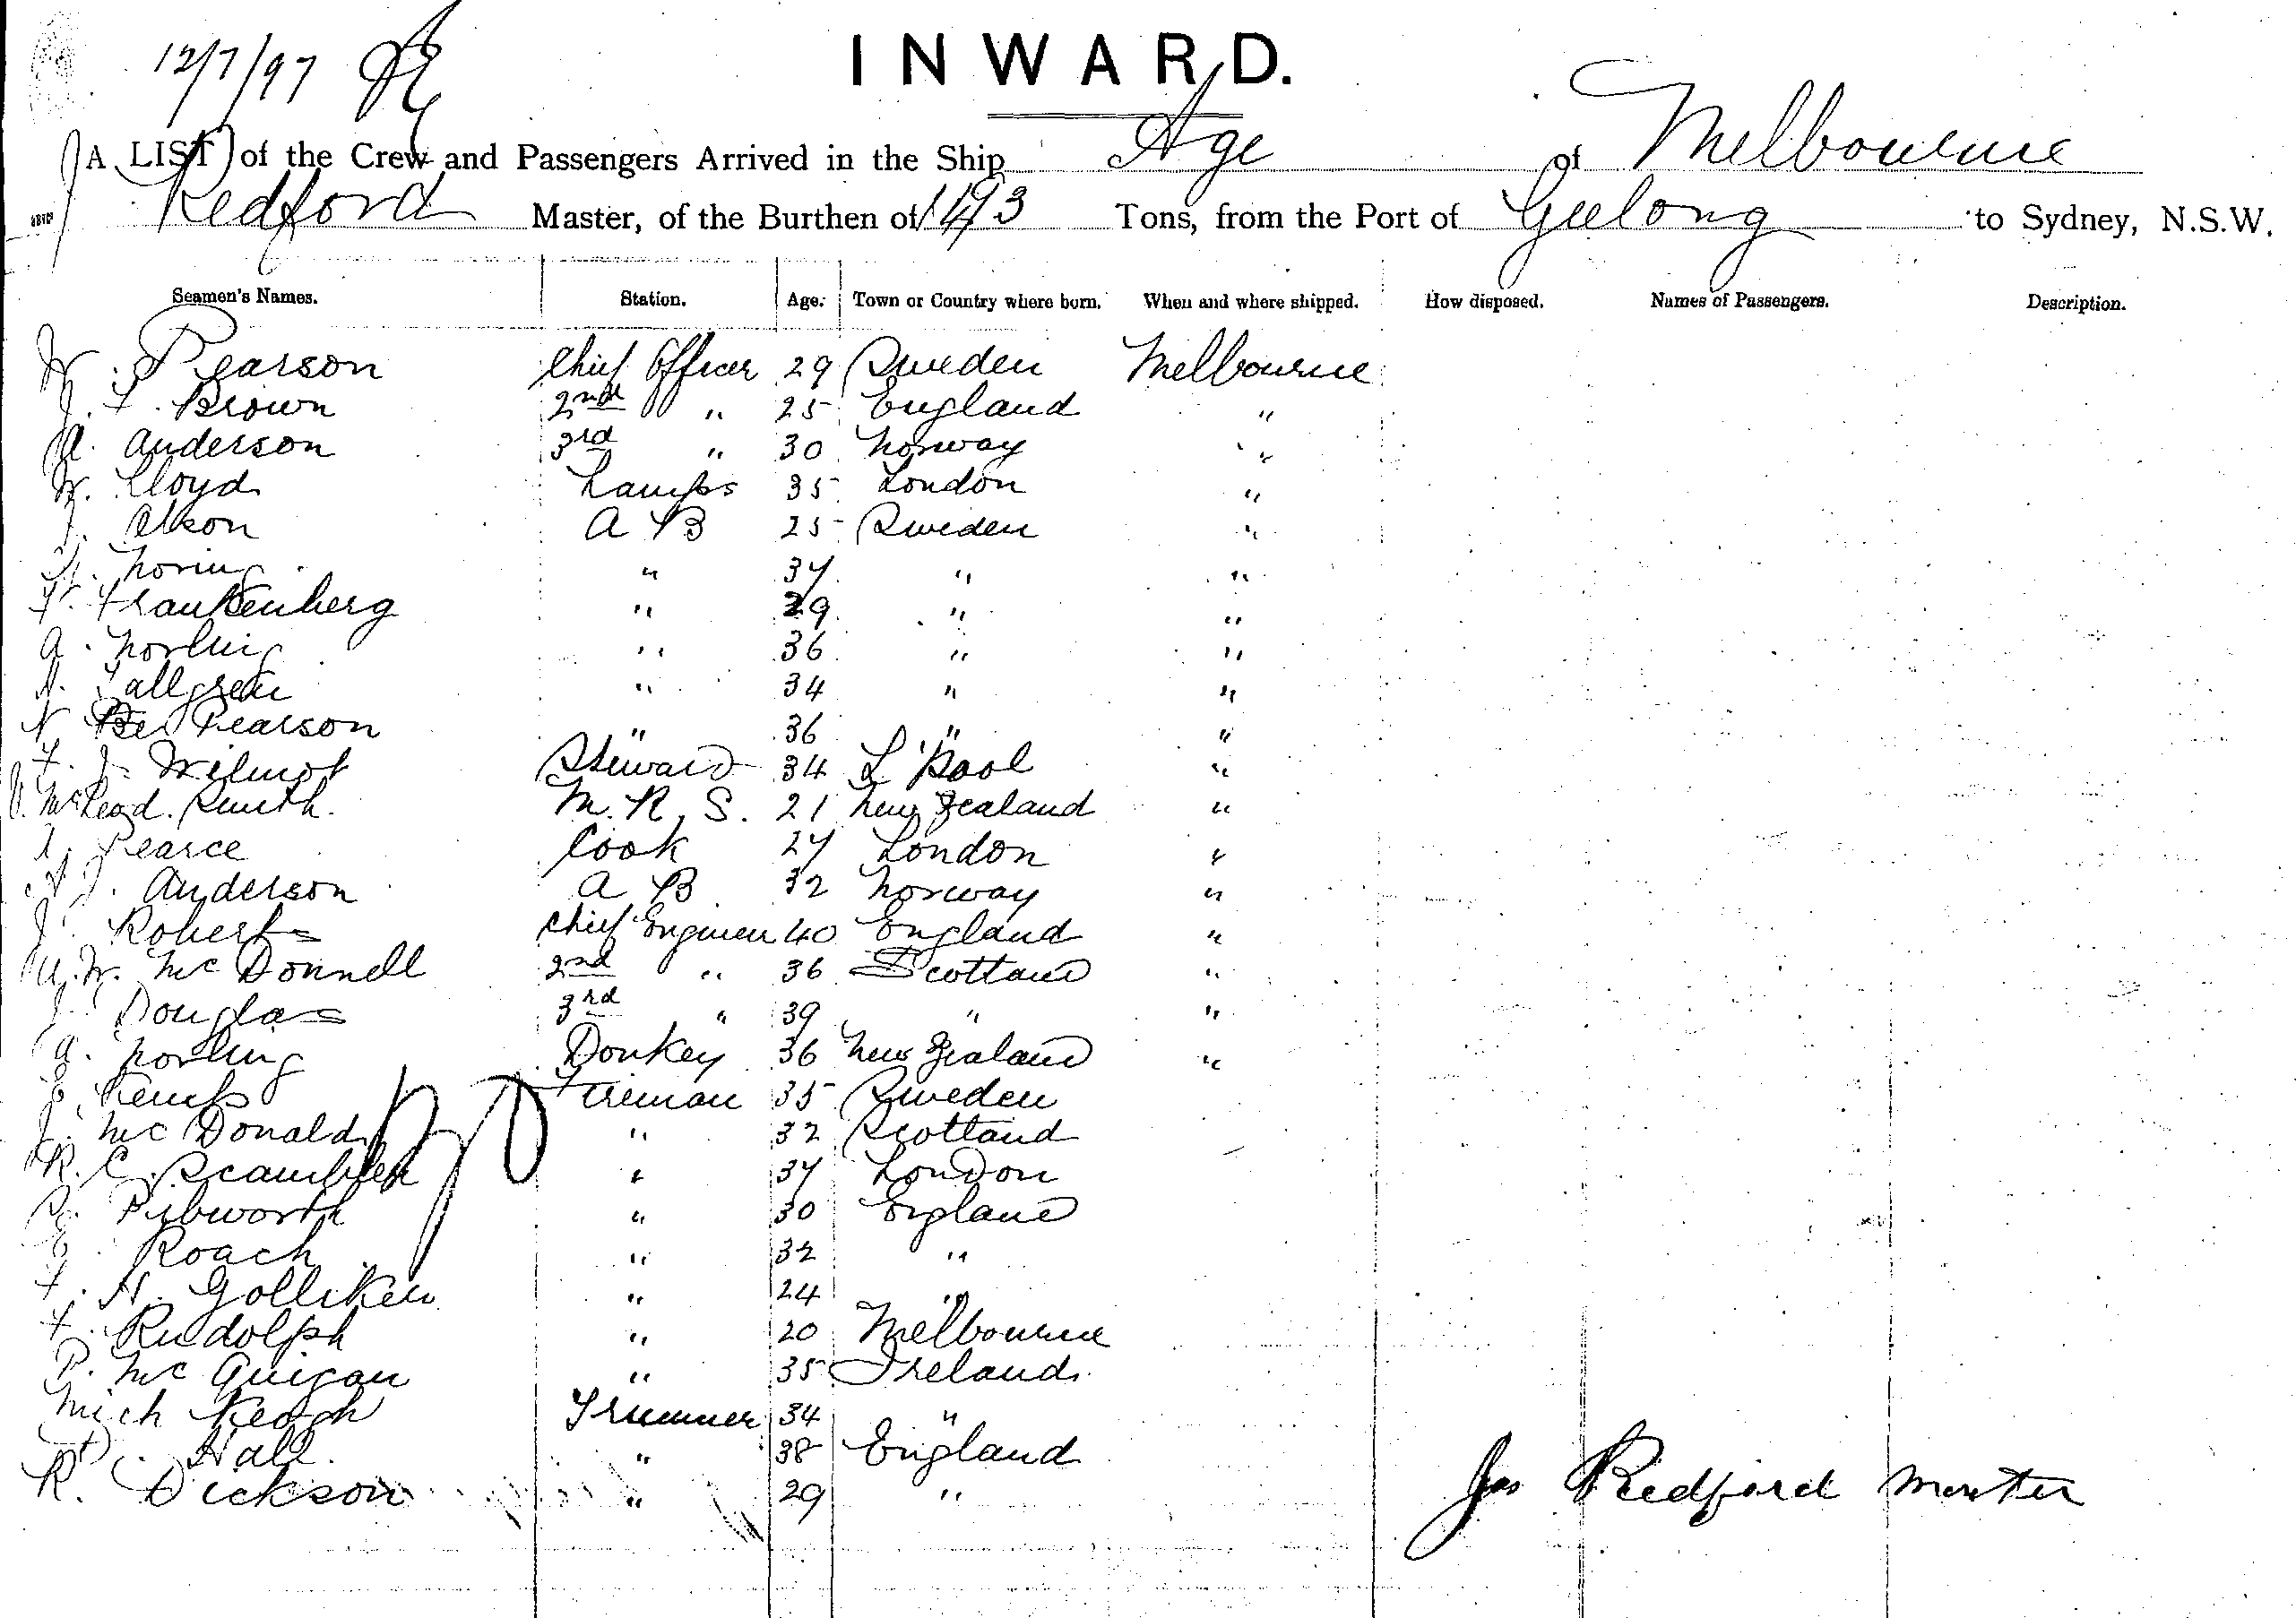 12/7/97
INWARD.
A LIST of the Crew and Passengers Arrived in the Ship Age of Melbourne
Redford Master, of the Burthen of 1493 Tons, from the Port of Geelong to Sydney, N.S.W.
Seamen's Names. Station. Age. Town or Country where born. When and where shipped. How disposed. Names of Passengers. Description.
W. Pearson Chief Officer 29 Sweden Melbourne
J. F. Brown 2nd " 25 England "
A. Anderson 3rd " 30 Norway "
W. Lloyd Lamps 35 London "
J. Olson A B 25 Sweden "
Noring " 37 " "
F. Frankenberg " 29 " "
A. Norling " 36 " "
A. Tallgren " 34 " "
N Pearson " 36 " "
F. J. Wilmot Steward 34 L'Pool "
McLeod Smith. M. R. S. 21 New Zealand "
Pearce Cook 27 London "
A J. Anderson A B 32 Norway "
J. Roberts Chief Engineer 40 England "
A. W. McDonnell 2nd " 36 Scotland "
J. Douglas 3rd " 39 " "
A. Norling Donkey 36 New Zealand "
E. Kemp Fireman 35 Sweden
J. McDonald " 32 Scotland
R. C. Scambler " 37 London
Pibworth " 30 England
E. Roach " 32 "
F. H. Golliken " 24 "
F. Rudolph " 20 Melbourne
P. McGuigan " 35 Ireland
Mich Keogh Trimmer 34 "
Hall " 38 England
R. Dickson " 29 "
Jas Redford Master